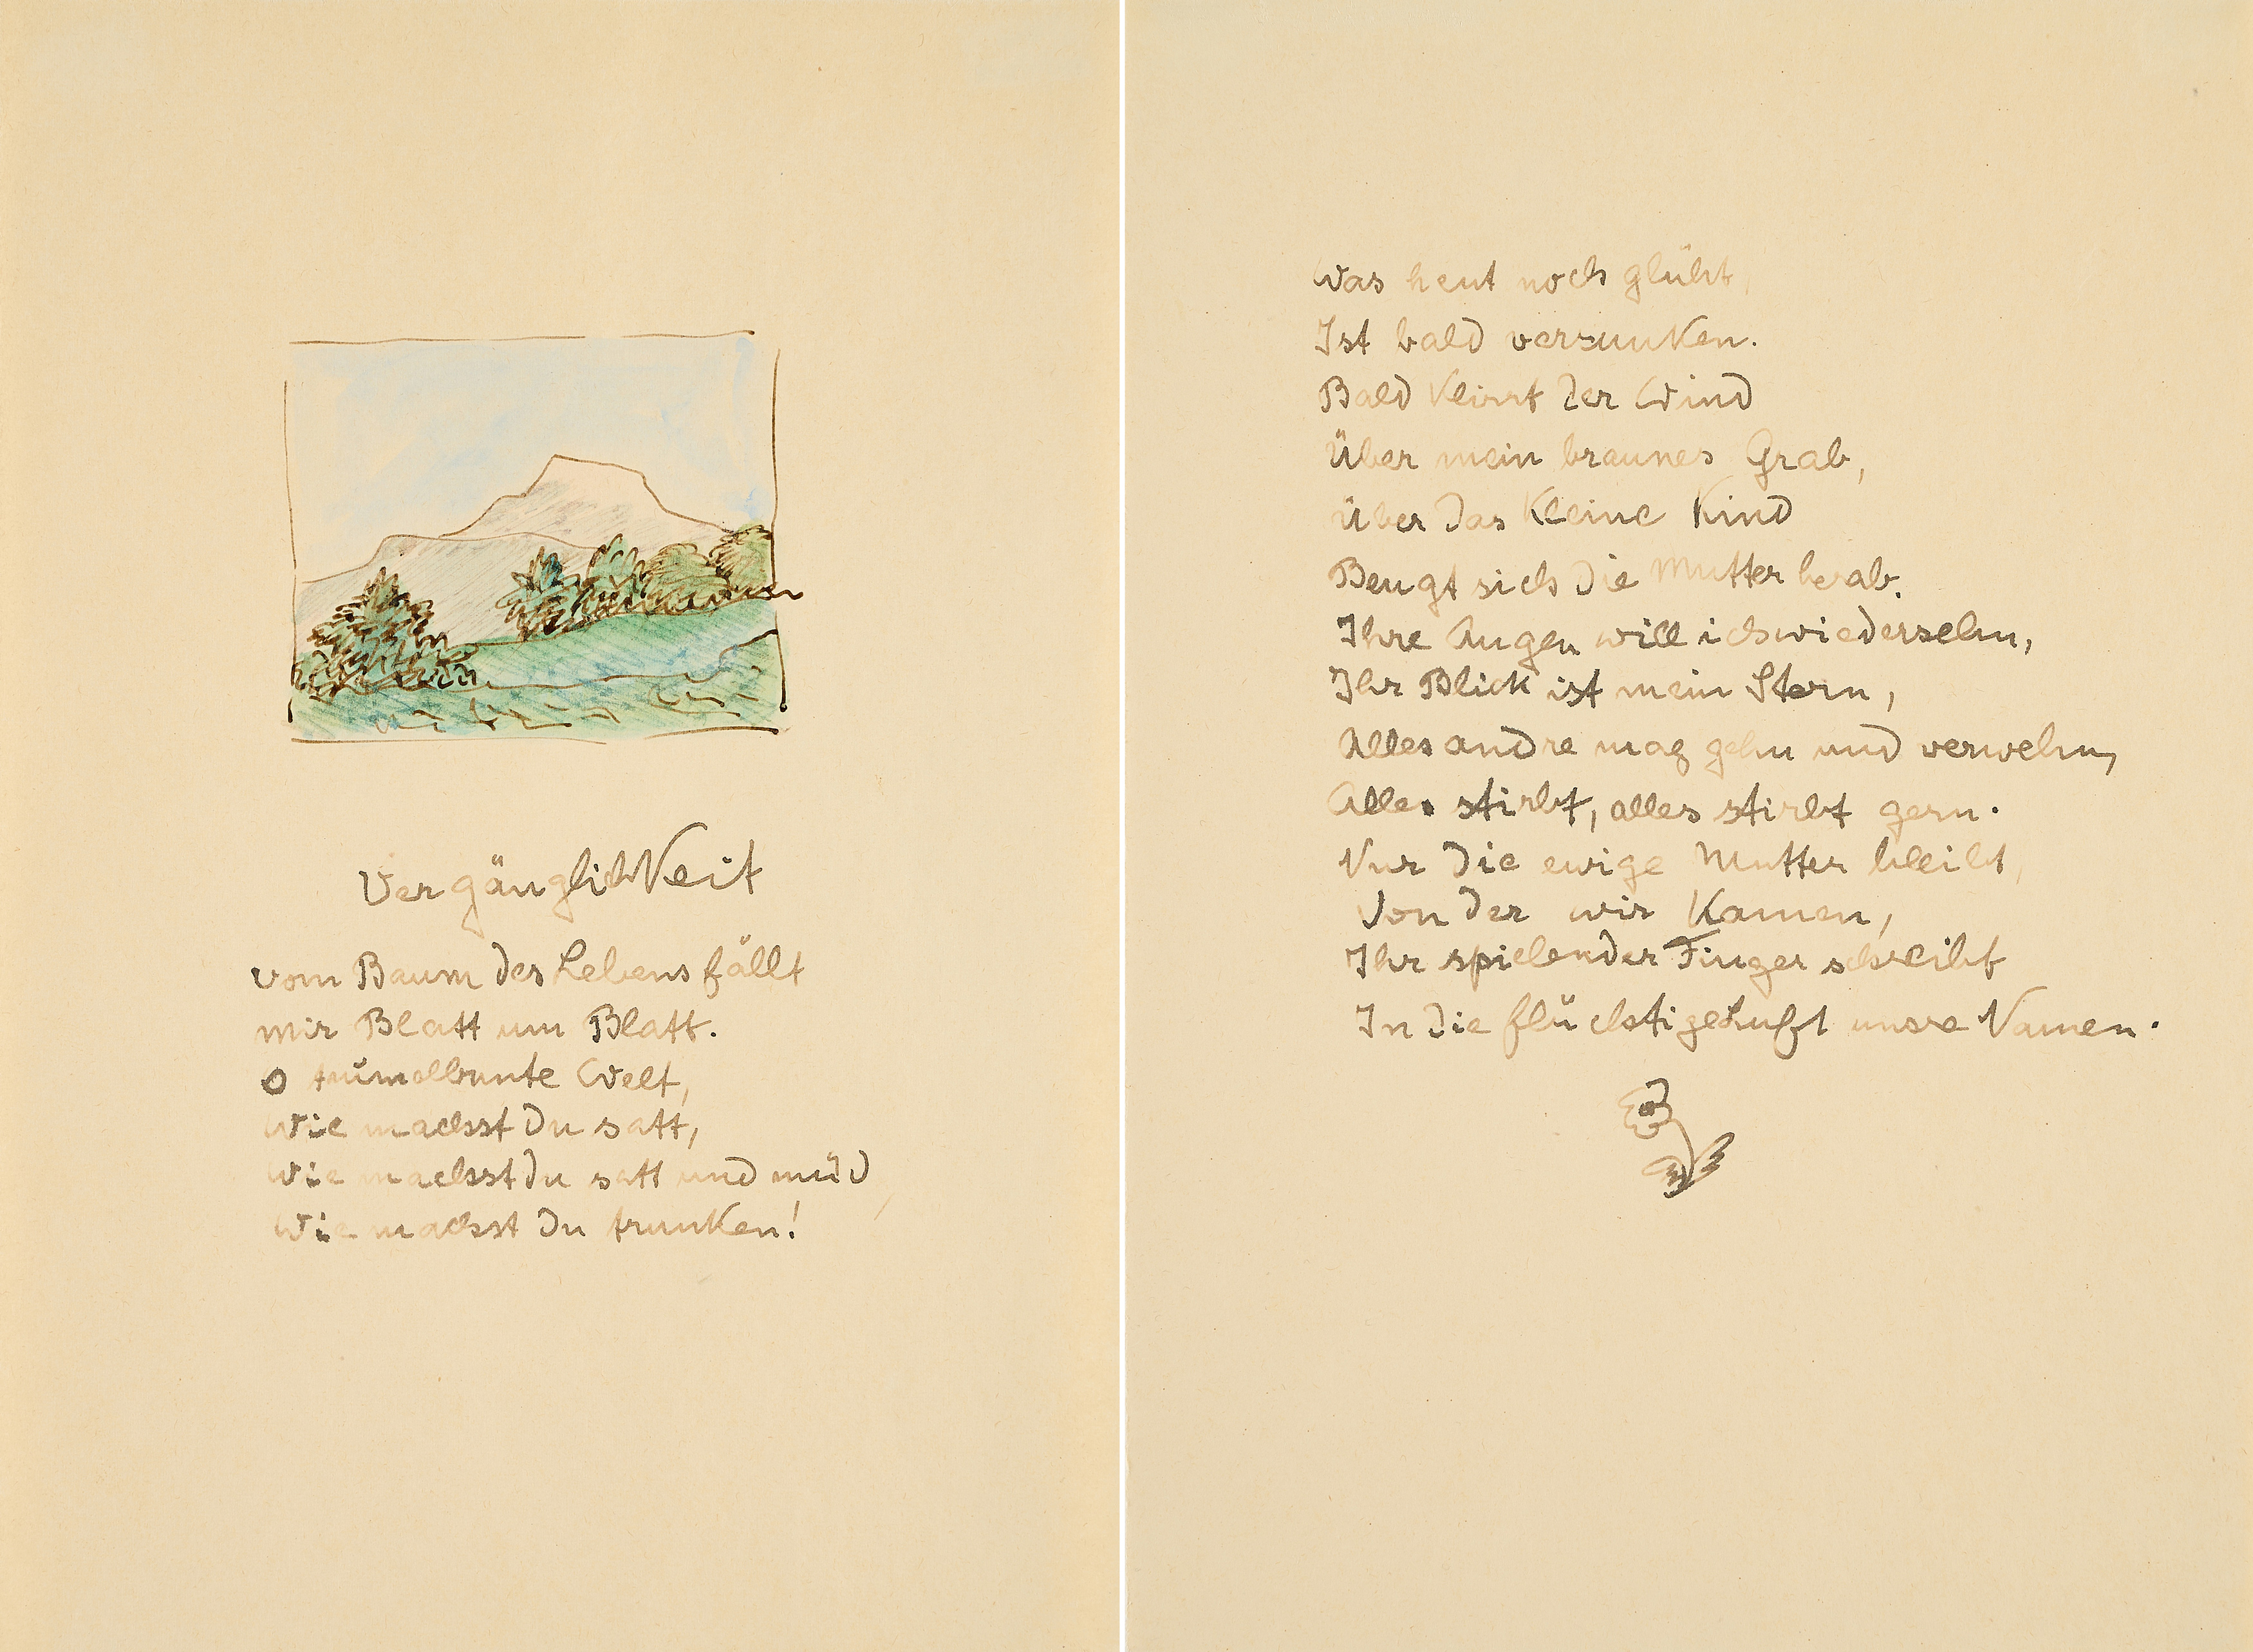 Vergänglichkeit
Vom Baum des Lebens fällt
Mir Blatt um Blatt.
O taumelbunte Welt,
Wie machst du satt,
Wie machst du satt und müd,
Wie machst du trunken!
Was heut noch glüht,
Ist bald versunken.
Bald klirrt der Wind
Über mein braunes Grab,
Über das kleine Kind
Beugt sich die Mutter herab.
Ihre Augen will ich wiedersehn,
Ihr Blick ist mein Stern,
Alles andre mag gehn und verwehn,
Alles stirbt, alles stirbt gern.
Nur die ewige Mutter bleibt,
Von der wir kamen,
Ihr spielender Finger schreibt
In die flüchtige Luft unsre Namen.